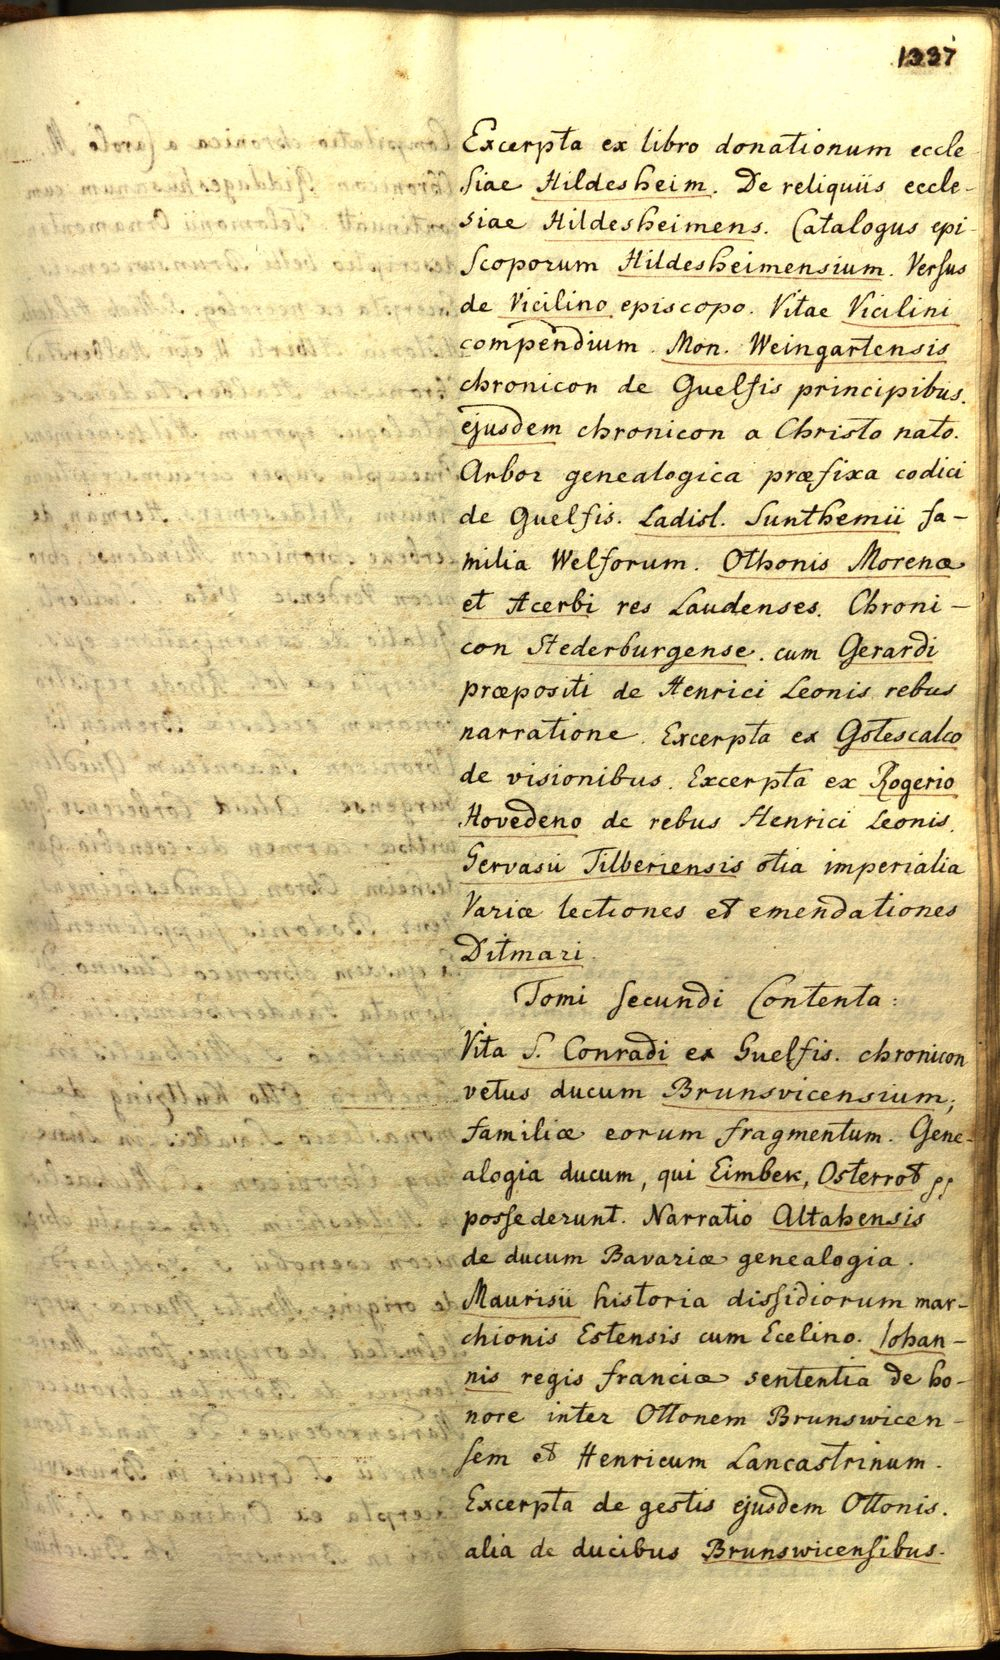 1337
Excerpta ex libro donationum eccle
siae Hildesheim. De reliquiis eccle-
siae Hildesheimens. Catalogus epi
scoporum Hildesheimensium. Versus
de Vicilino episcopo. Vitae Vicilini
compendium. Mon. Weingartensis
chronicon de Guelfis principibus.
ejusdem chronicon a Christo nato.
Arbor genealogica præfixa codici
de Guelfis. Ladisl. Sunthemii fa-
milia Welforum. Othonis Morenæ
et Acerbi res Laudenses. Chroni-
con Stederburgense. cum Gerardi
præpositi de Henrici Leonis rebus
narratione. Excerpta ex Gotescalco
de visionibus. Excerpta ex Rogerio
Hovedeno de rebus Henrici Leonis.
Gervasii Tilberiensis otia imperialia
Variæ lectiones et emendationes
Ditmari.
Tomi secundi Contenta:
Vita S. Conradi ex Guelfis. chronicon
vetus ducum Brunsvicensium;
familiæ eorum fragmentum. Gene-
alogia ducum, qui Eimbek, Osterrot
possederunt. Narratio Altahensis
de ducum Bavariæ genealogia.
Maurisii historia dissidiorum mar-
chionis Estensis cum Ecelino. Iohan-
nis regis franciæ sententia de ho-
nore inter Ottonem Brunswicen-
sem et Henricum Lancastrinum.
Excerpta de gestis ejusdem Ottonis.
alia de ducibus Brunswicensibus.